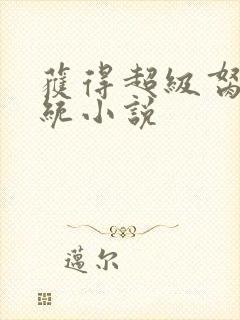 獲得超級
統小說
邁尔